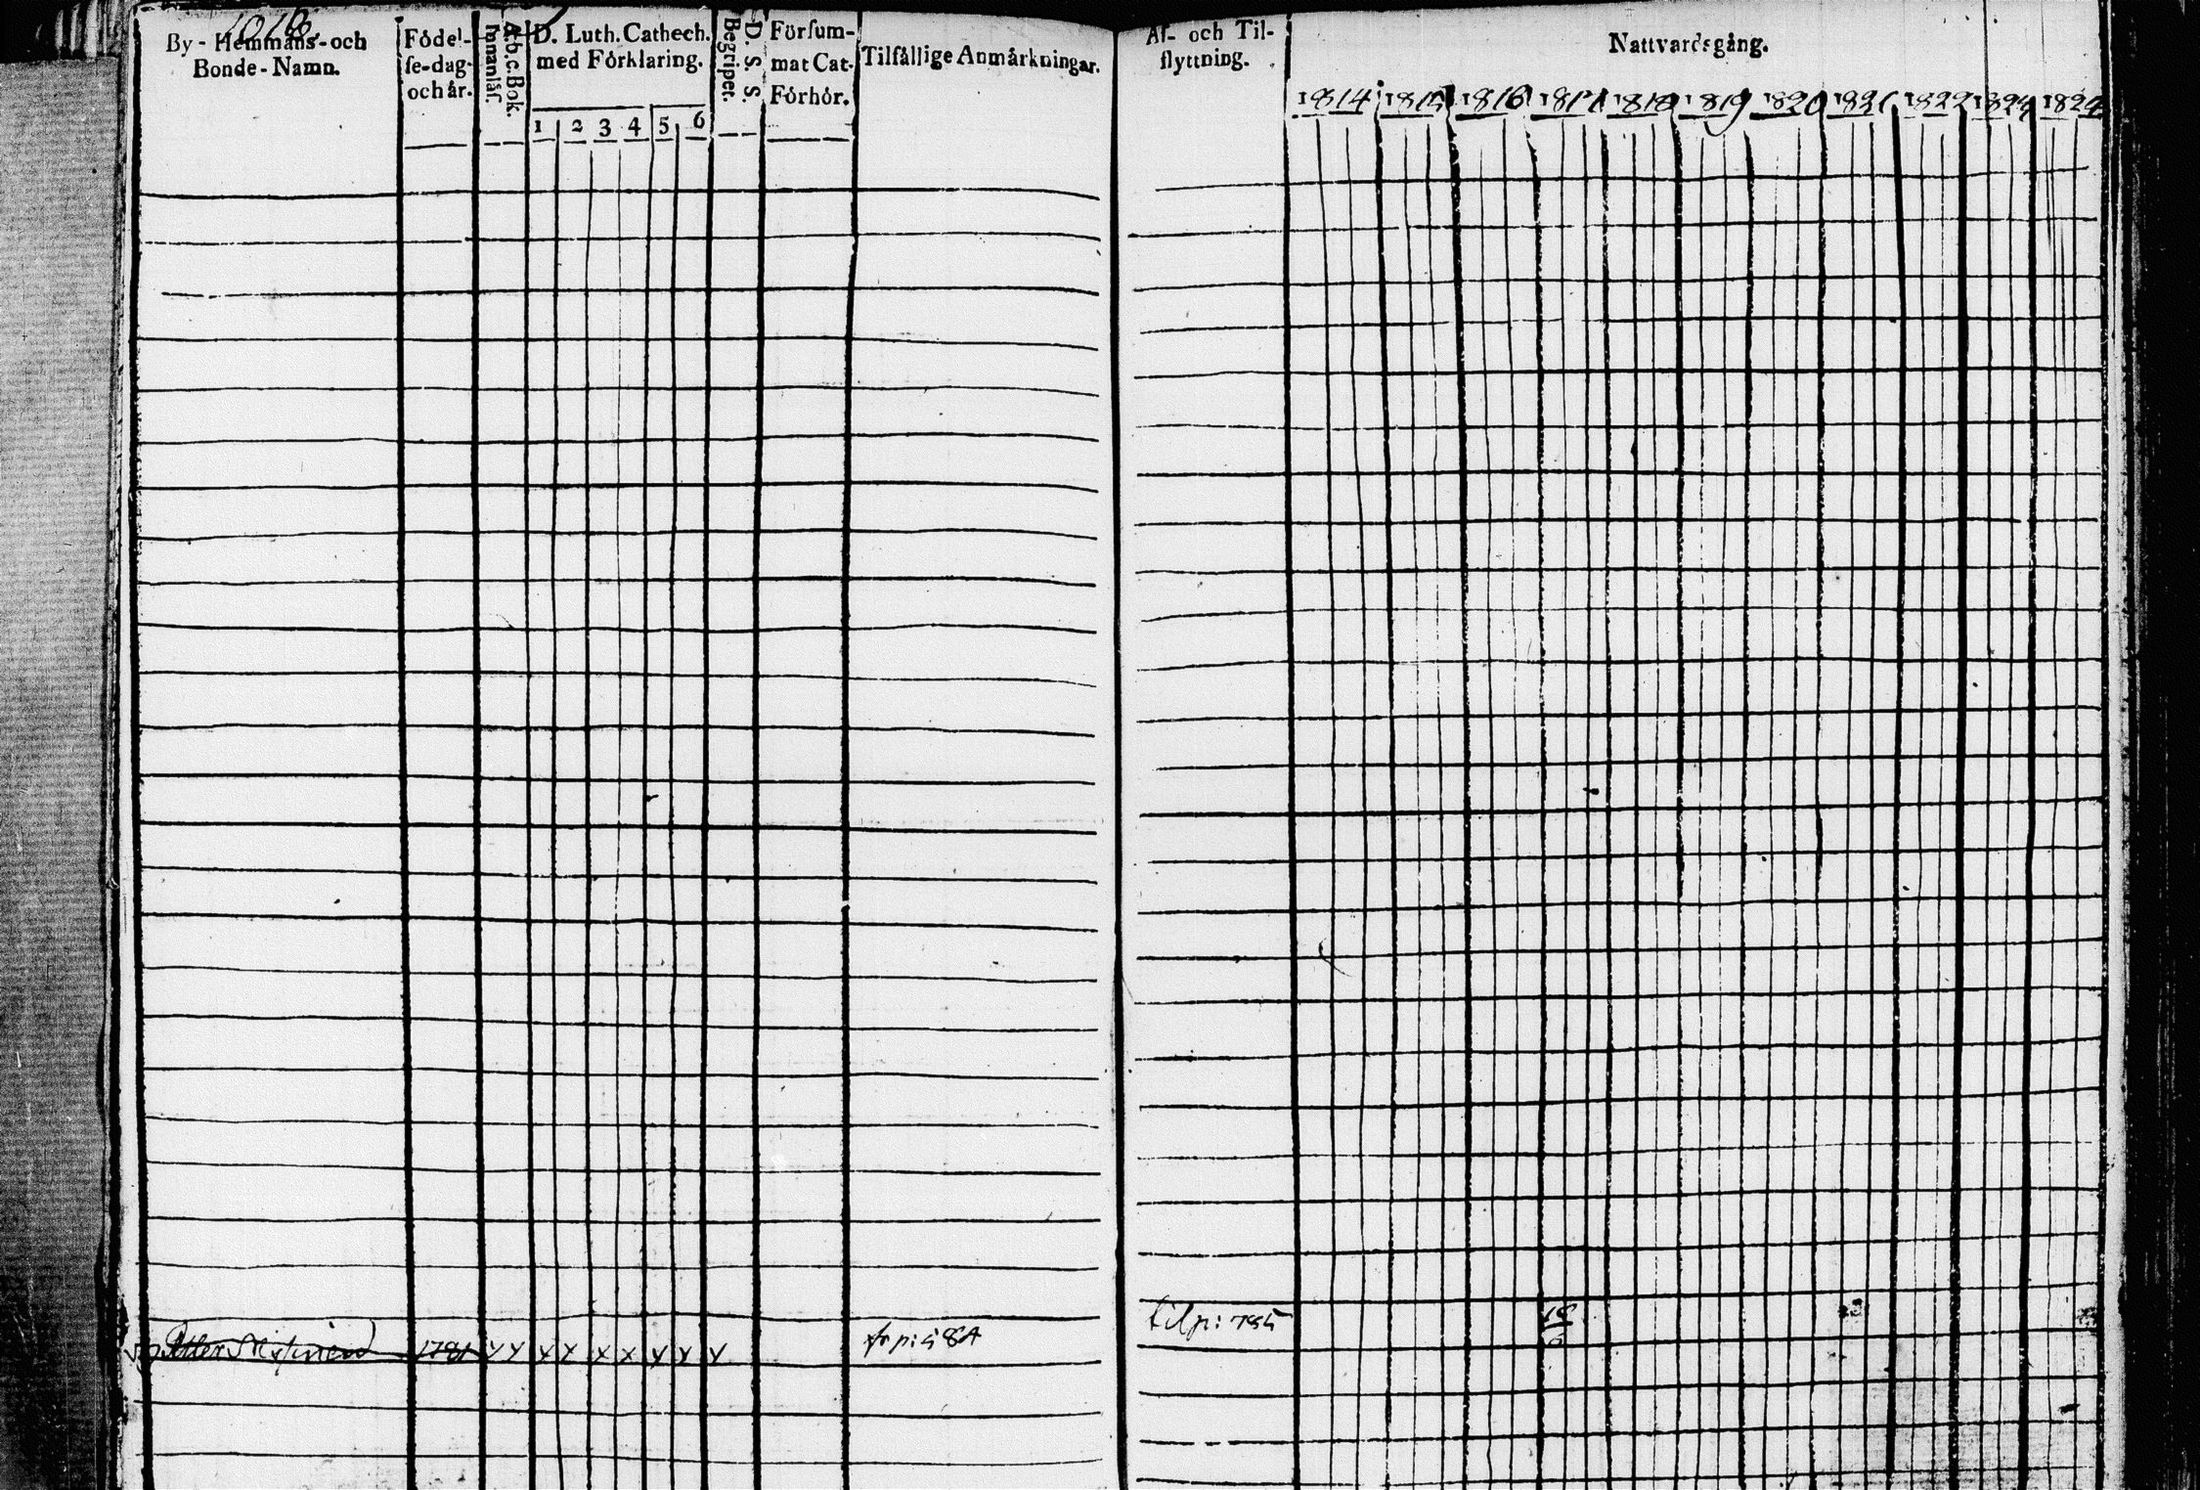 1016.
By- Hemmans- och
Bonde-Namn.
Födel-
se-dag
och år.
A. b. c. Bok.
Innanläs.
D. Luth. Cathech.
med Förklaring.
1 2 3 4 5 6
D. S. S.
Begripet.
Försum-
mat Cat.
Förhör.
Tilfällige Anmärkningar.
Af- och Til-
flyttning.
Nattvardsgång.
1814 1815 1816 1817 1818 1819 1820 1821 1822 1823 1824
Petter 1781 x x x x x x x x x fr p: 584 til p: 785 18/6